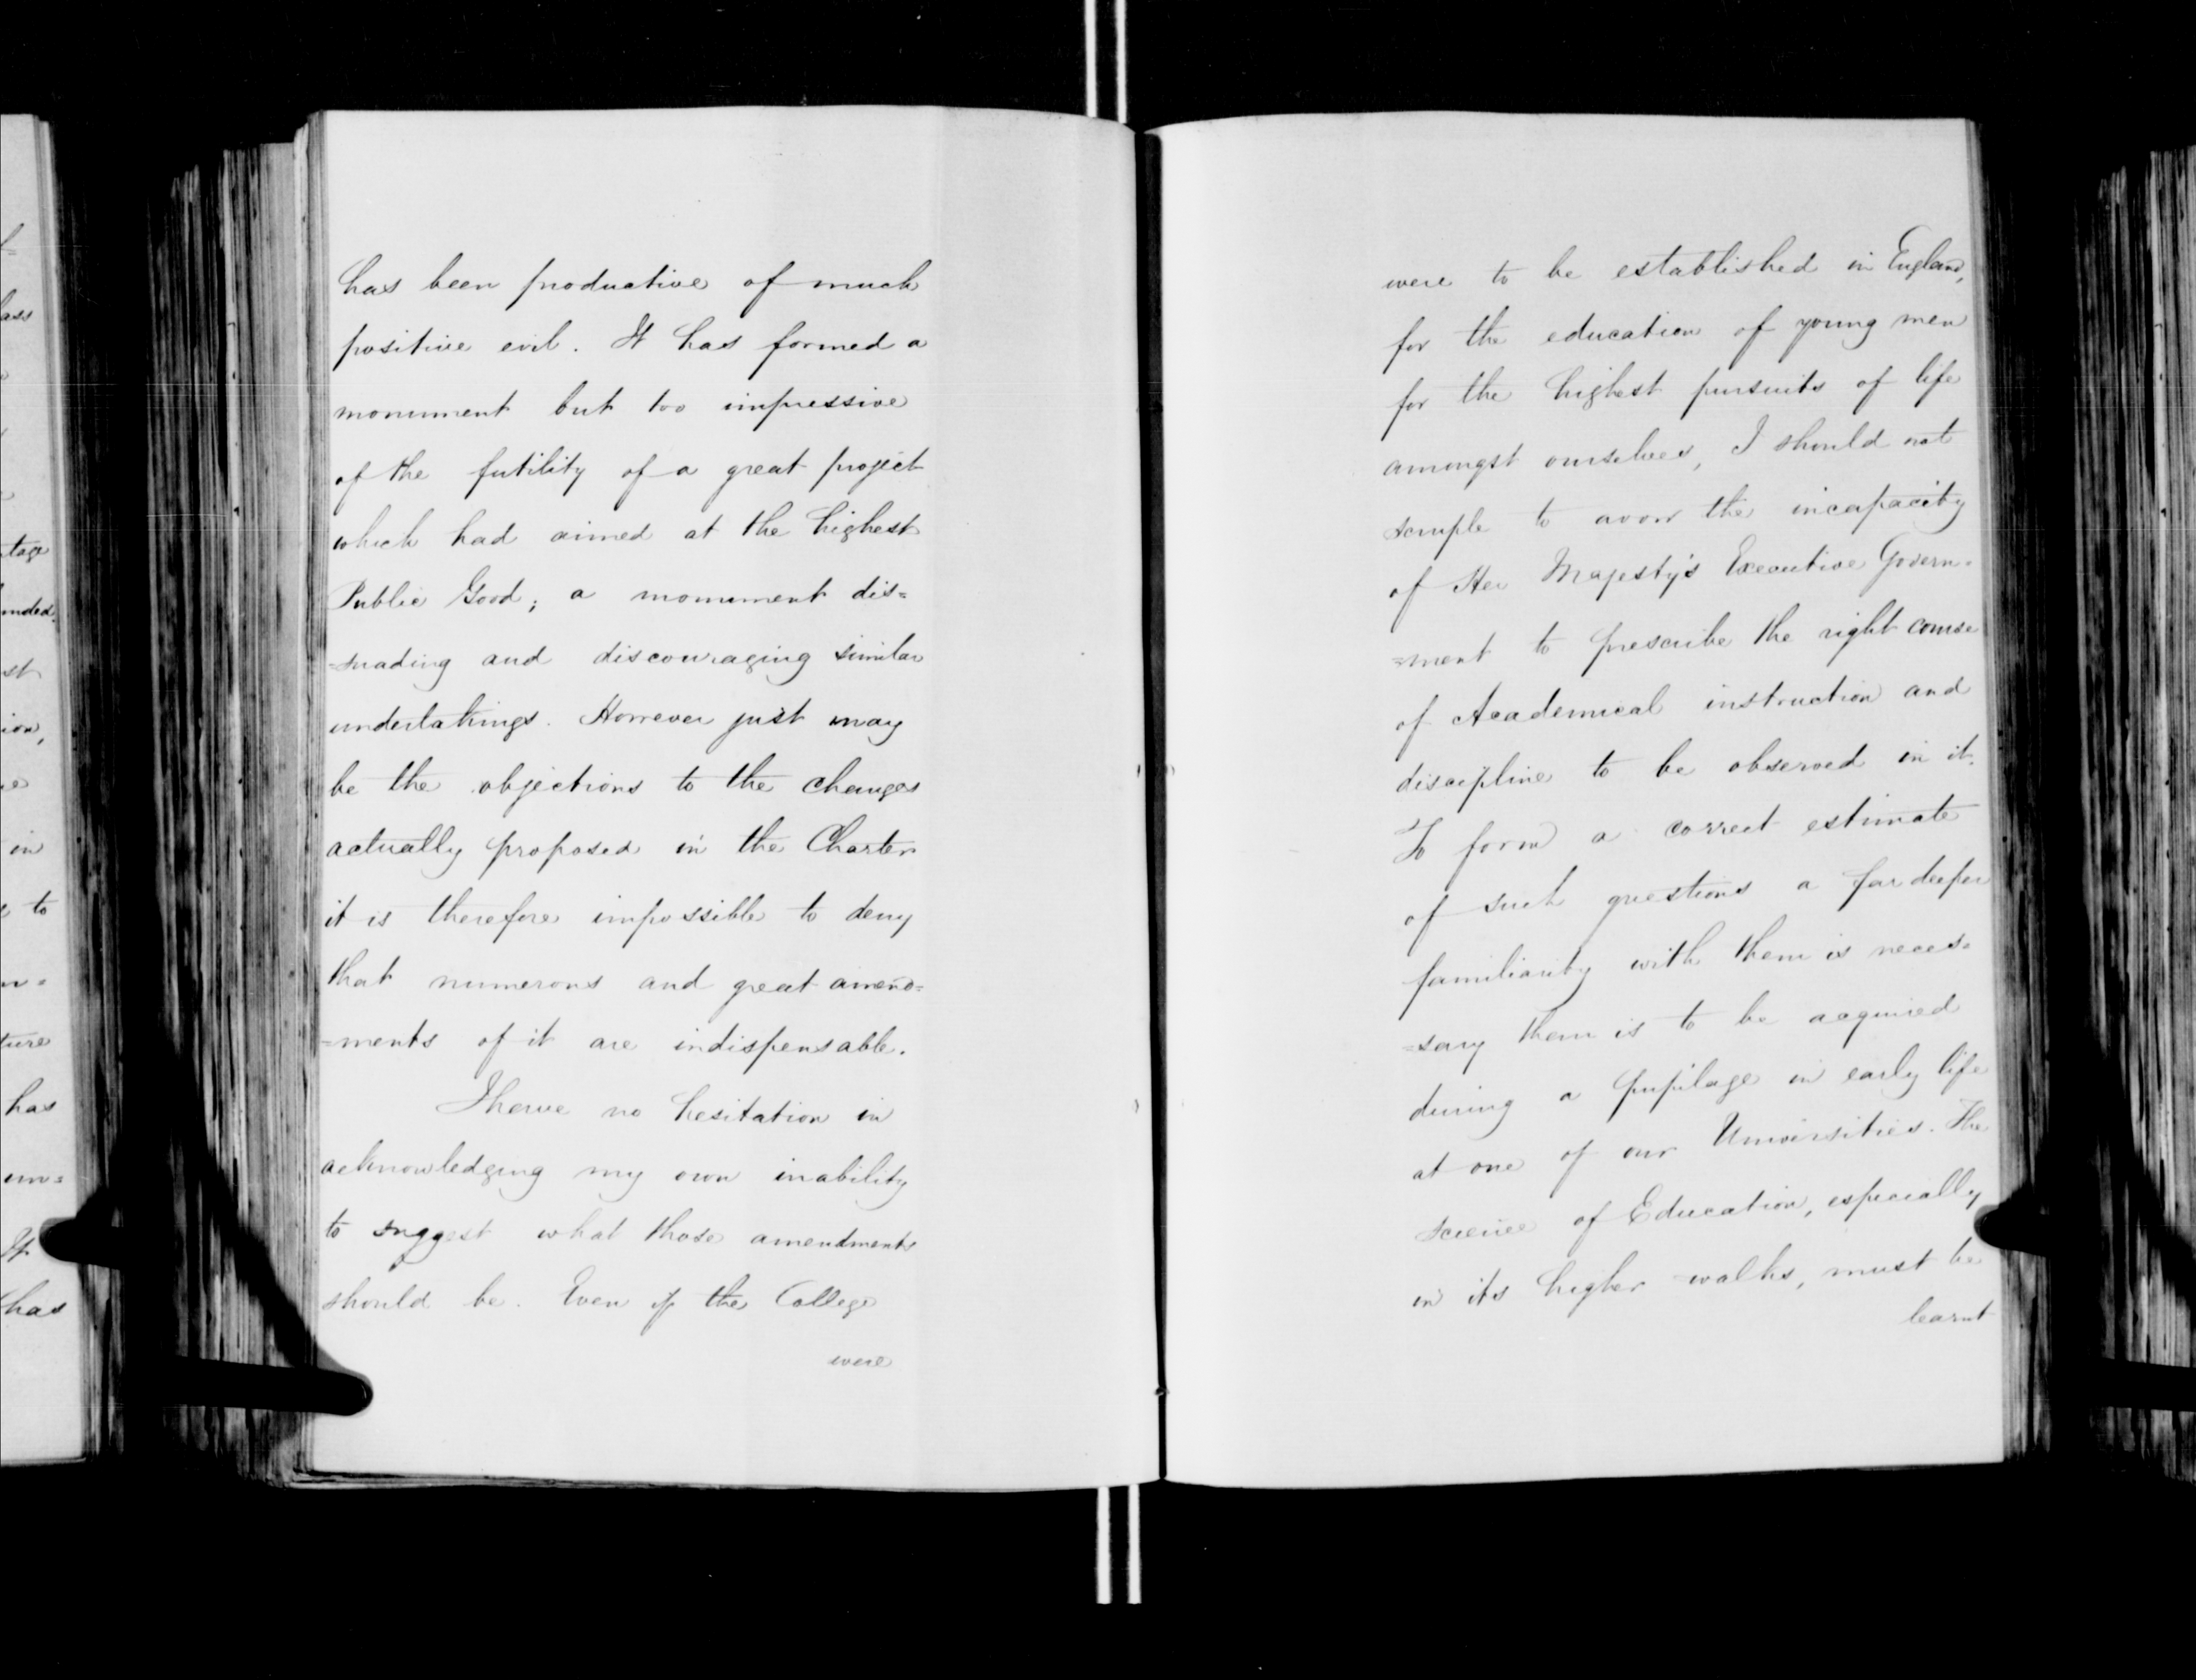 has been productive of much
positive evil. It has formed a
monument but too impressive
of the futility of a great project
which had aimed at the highest
Public Good; a monument dis=
=suading and discouraging similar
undertakings. However just may
be the objections to the changes
actually proposed in the Charter
it is therefore impossible to deny
that numerous and great amend=
=ments of it are indispensable.
I have no hesitation in
acknowledging my own inability
to suggest what those amendments
should be. Even if the College
were
were to be established in England,
for the education of young men
for the highest pursuits of life
amongst ourselves, I should not
scruple to avow the incapacity
of Her Majesty's Executive Govern=
=ment to prescribe the right course
of Academical instruction and
discipline to be observed in it.
To form a correct estimate
of such questions a far deeper
familiarity with them is neces=
=sary them is to be acquired
during a pupilage in early life
at one of our Universities. The
science of Education, especially
in its higher walks, must be
learnt
tage
st
ion,
in
to
ture
has
It
has